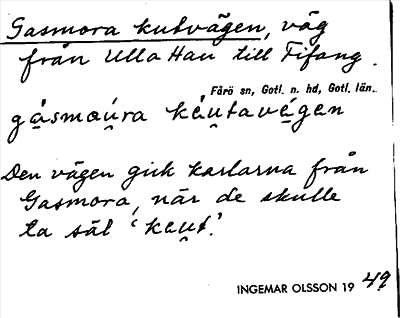 Gasmora kutvägen, väg
från Ulla Hau till Tifang.
Fårö sn, Gotl. n. hd, Gotl. län.
gásmaura káutavégen
Den vägen gick karlarna från
Gasmora, när de skulle
ta säl 'kaut'.
INGEMAR OLSSON 19 49